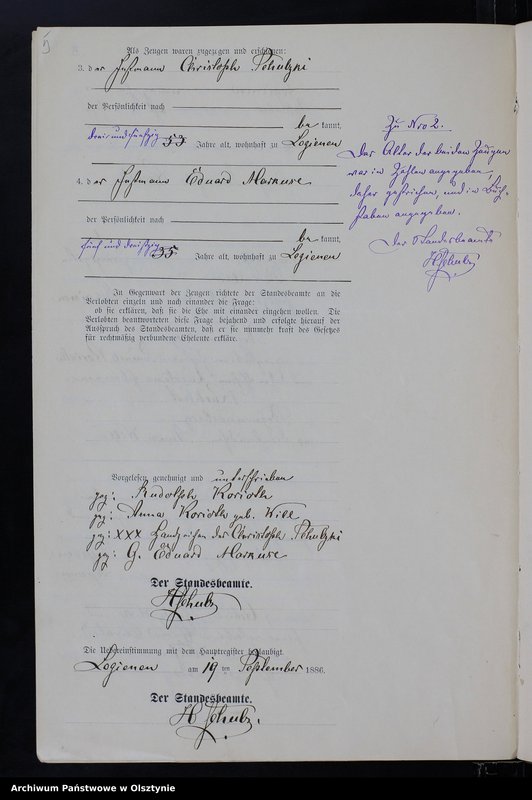 5
Als Zeugen waren zugezogen und erschienen:
3. der Instmann Christoph Schulzki
der Persönlichkeit nach
be kannt,
dreiundfünfzig 53 Jahre alt, wohnhaft zu Legienen
4. der Instmann Eduard Markuse
der Persönlichkeit nach
be kannt,
fünf und dreißig 35 Jahre alt, wohnhaft zu Legienen
In Gegenwart der Zeugen richtete der Standesbeamte an die
Verlobten einzeln und nach einander die Frage:
ob sie erklären, daß sie die Ehe mit einander eingehen wollen. Die
Verlobten beantworteten diese Frage bejahend und erfolgte hierauf der
Ausspruch des Standesbeamten, daß er sie nunmehr kraft des Gesetzes
für rechtmäßig verbundene Eheleute erkläre.
Vorgelesen, genehmigt und unterschrieben
gez: Rudolph Korioth
gz: Anna Korioth geb. Will
gz: XXX Handzeichen des Christoph Schulzki
gz: G. Eduard Markuse
Der Standesbeamte.
H Schulz
Die Uebereinstimmung mit dem Hauptregister beglaubigt
Legienen am 19 ten September 1886.
Der Standesbeamte.
H Schulz.
Zu Nro 2.
Das Alter der beiden Zeugen
war in Zahlen angegeben,
daher gestrichen, und in Buch-
staben angegeben.
Der Standesbeamte
H Schulz
Archiwum Państwowe w Olsztynie